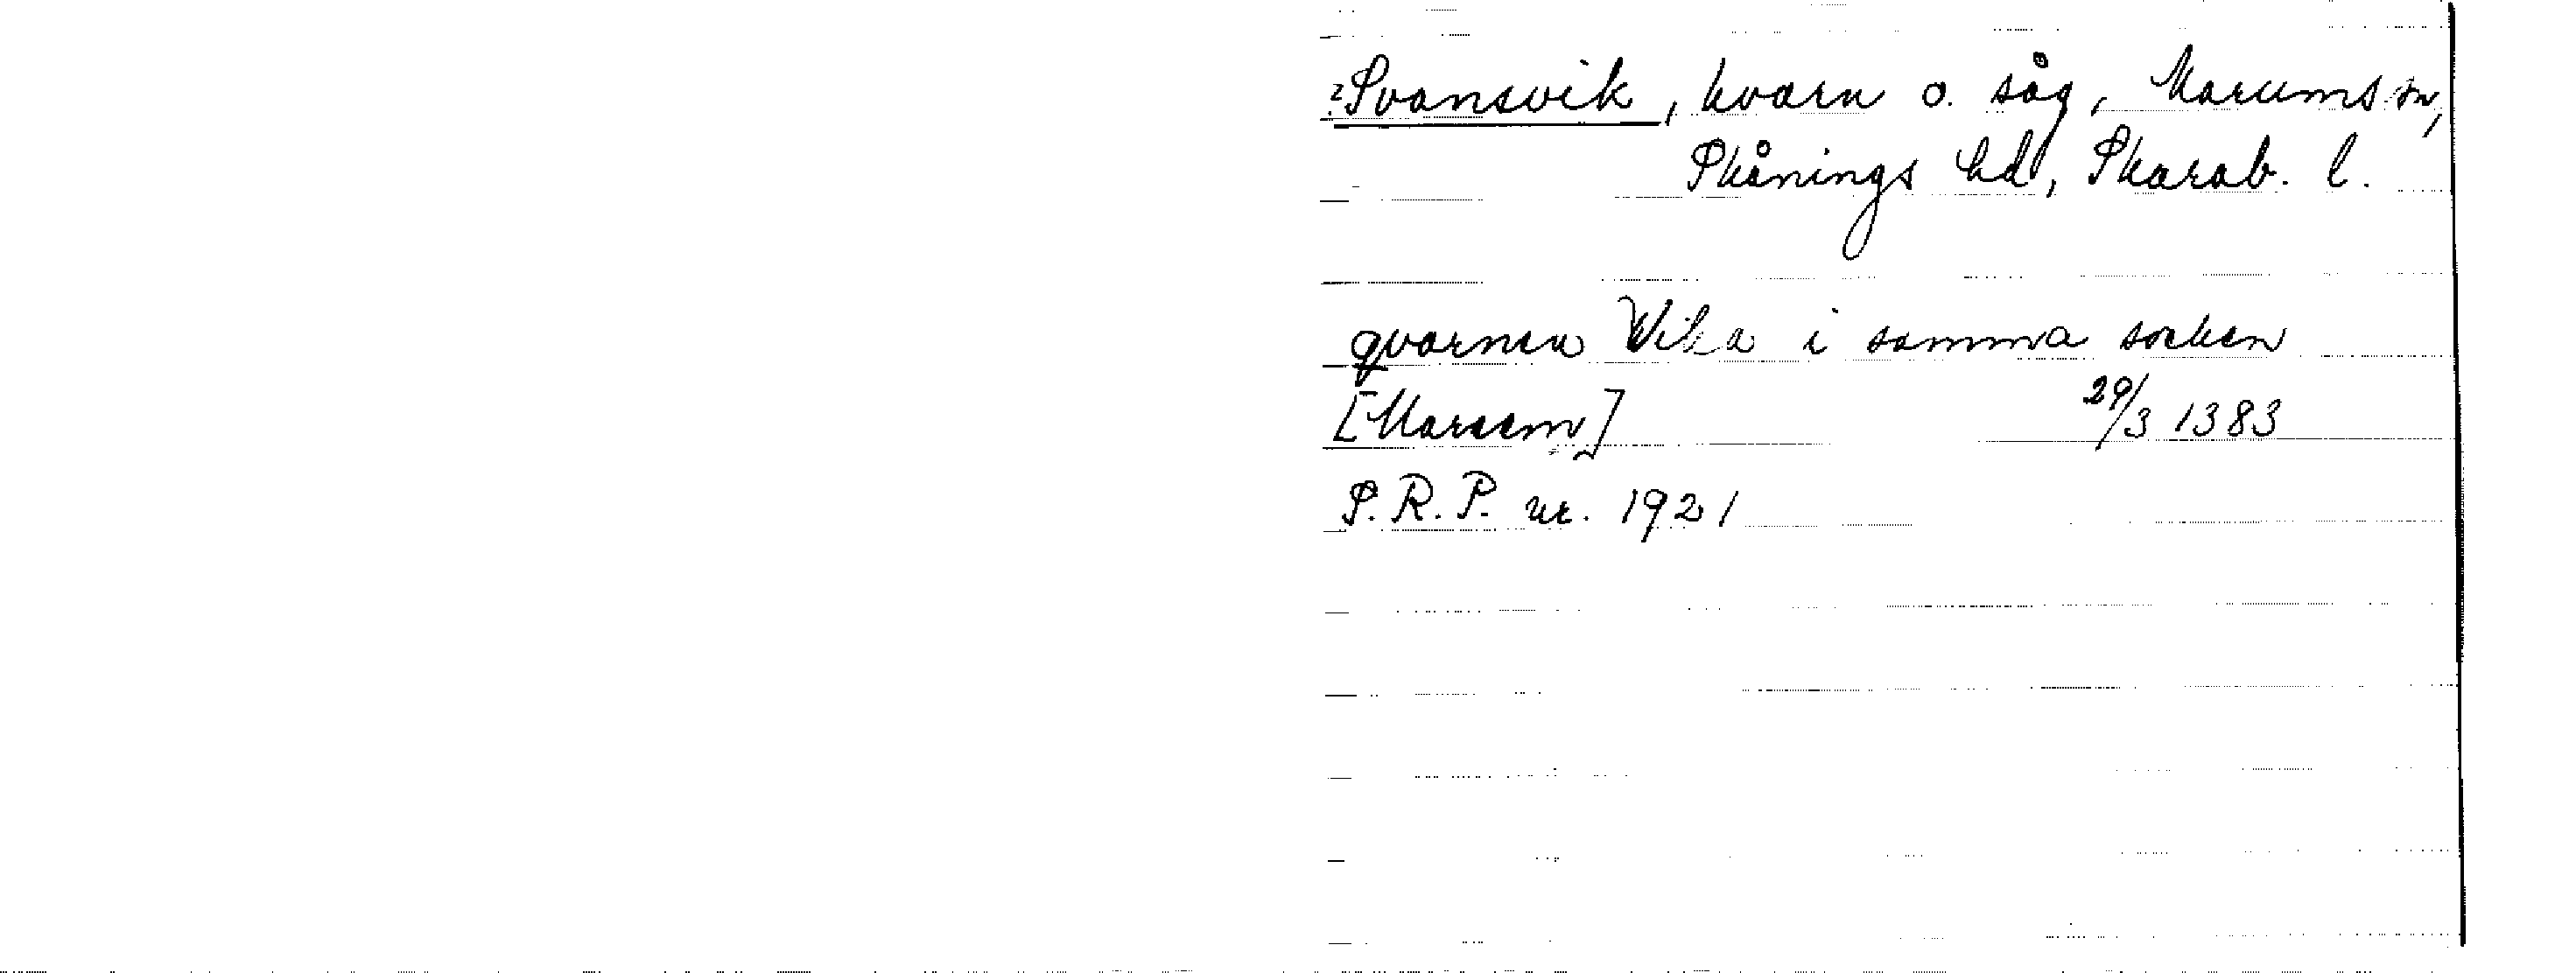 ?Svansvik, kvarn o. såg, Marums sn,
Skånings hd, Skarab. l.
qvarnen Vika i samma socken
[Marum] 29/3 1383
S.R.P. nr. 1921